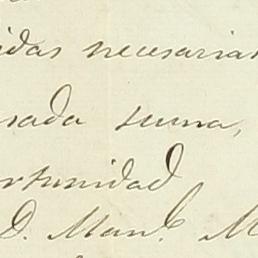 idas necesarias
sada suma,
ortunidad
D. Man.l M